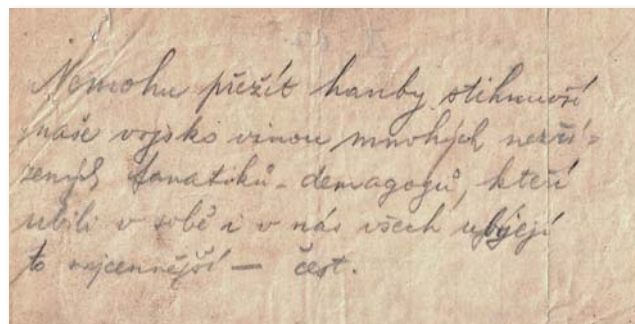 Nemohu přežít hanby stihnuvší
naše vojsko vinou mnohých neří-
zených fanatiků-demagogů, kteří
ubili v sobě i v nás všech ubíjejí
to nejcennější — čest.